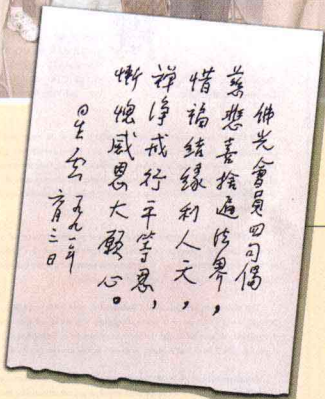 佛光會員四句偈
慈悲喜捨遍法界，
惜福結緣利人天，
禪淨戒行平等忍，
慚愧感恩大願心。
星雲 一九九一年
六月三日